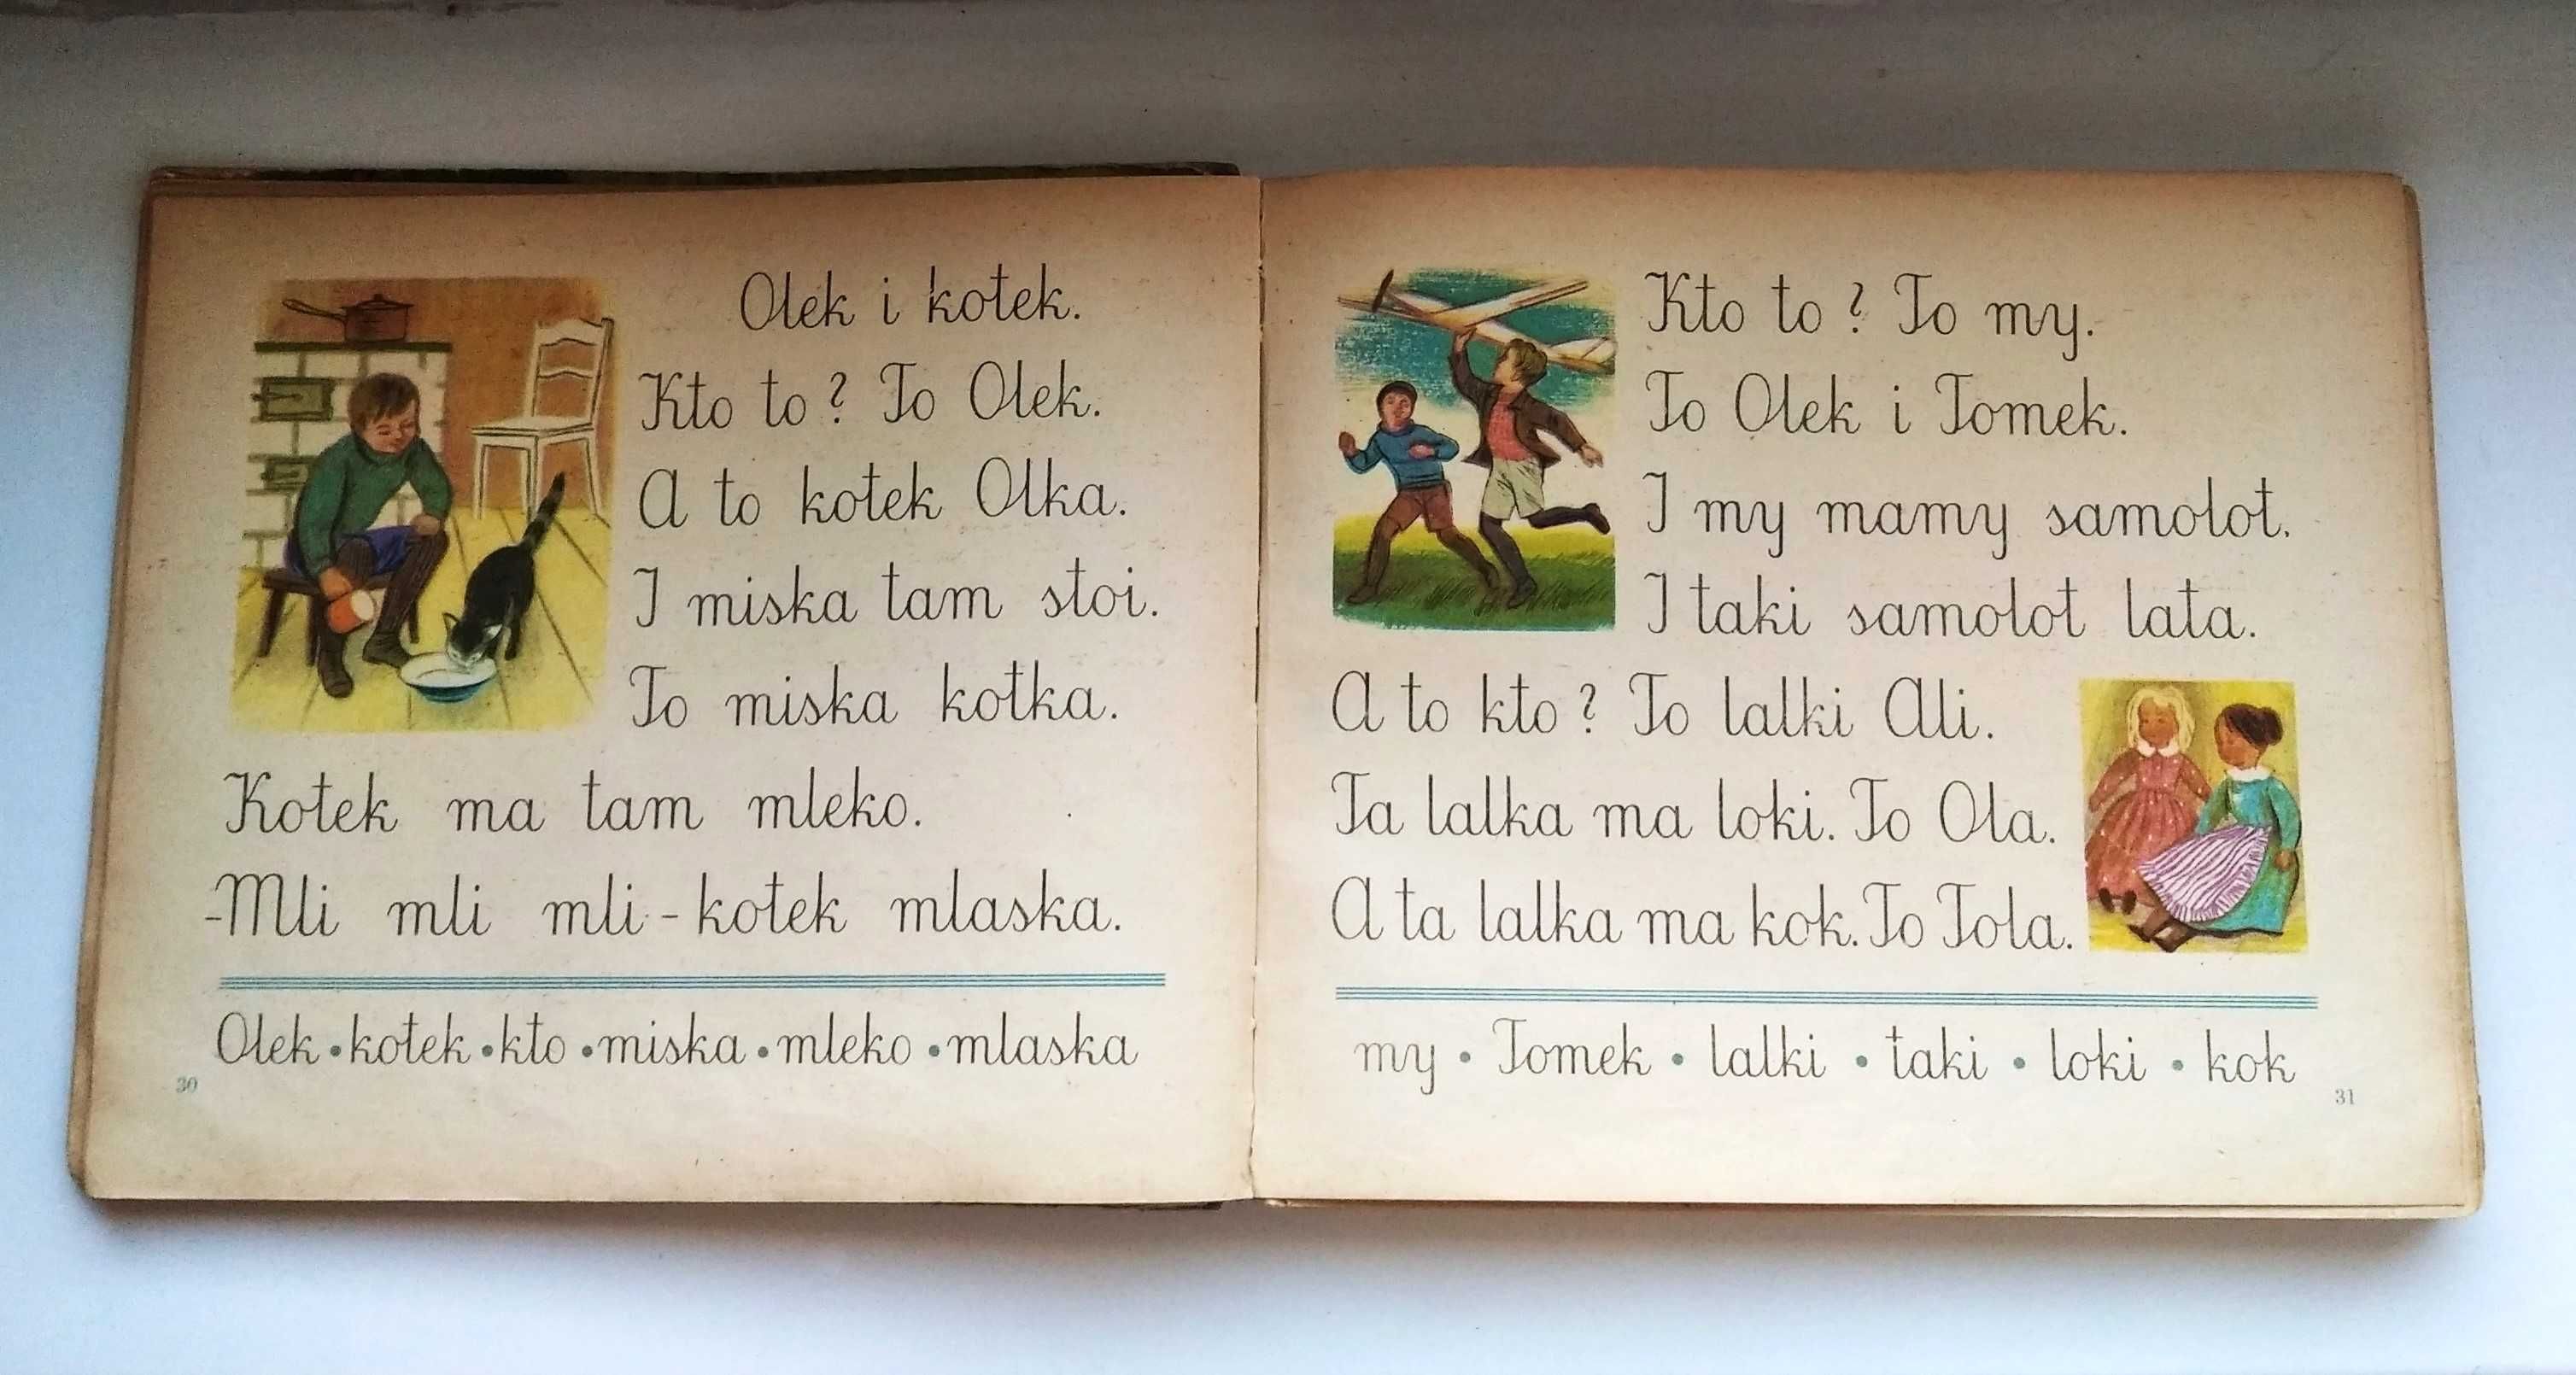 Olek i kotek.
Kto to? To Olek.
A to kotek Olka.
I miska tam stoi.
To miska kotka.
Kotek ma tam mleko.
-Mli mli mli - kotek mlaska.
Olek • kotek • kto • miska • mleko • mlaska
30
Kto to? To my.
To Olek i Tomek.
I my mamy samolot.
I taki samolot lata.
A to kto? To lalki Ali.
Ta lalka ma loki. To Ola.
A ta lalka ma kok. To Tola.
my • Tomek • lalki • taki • loki • kok
31